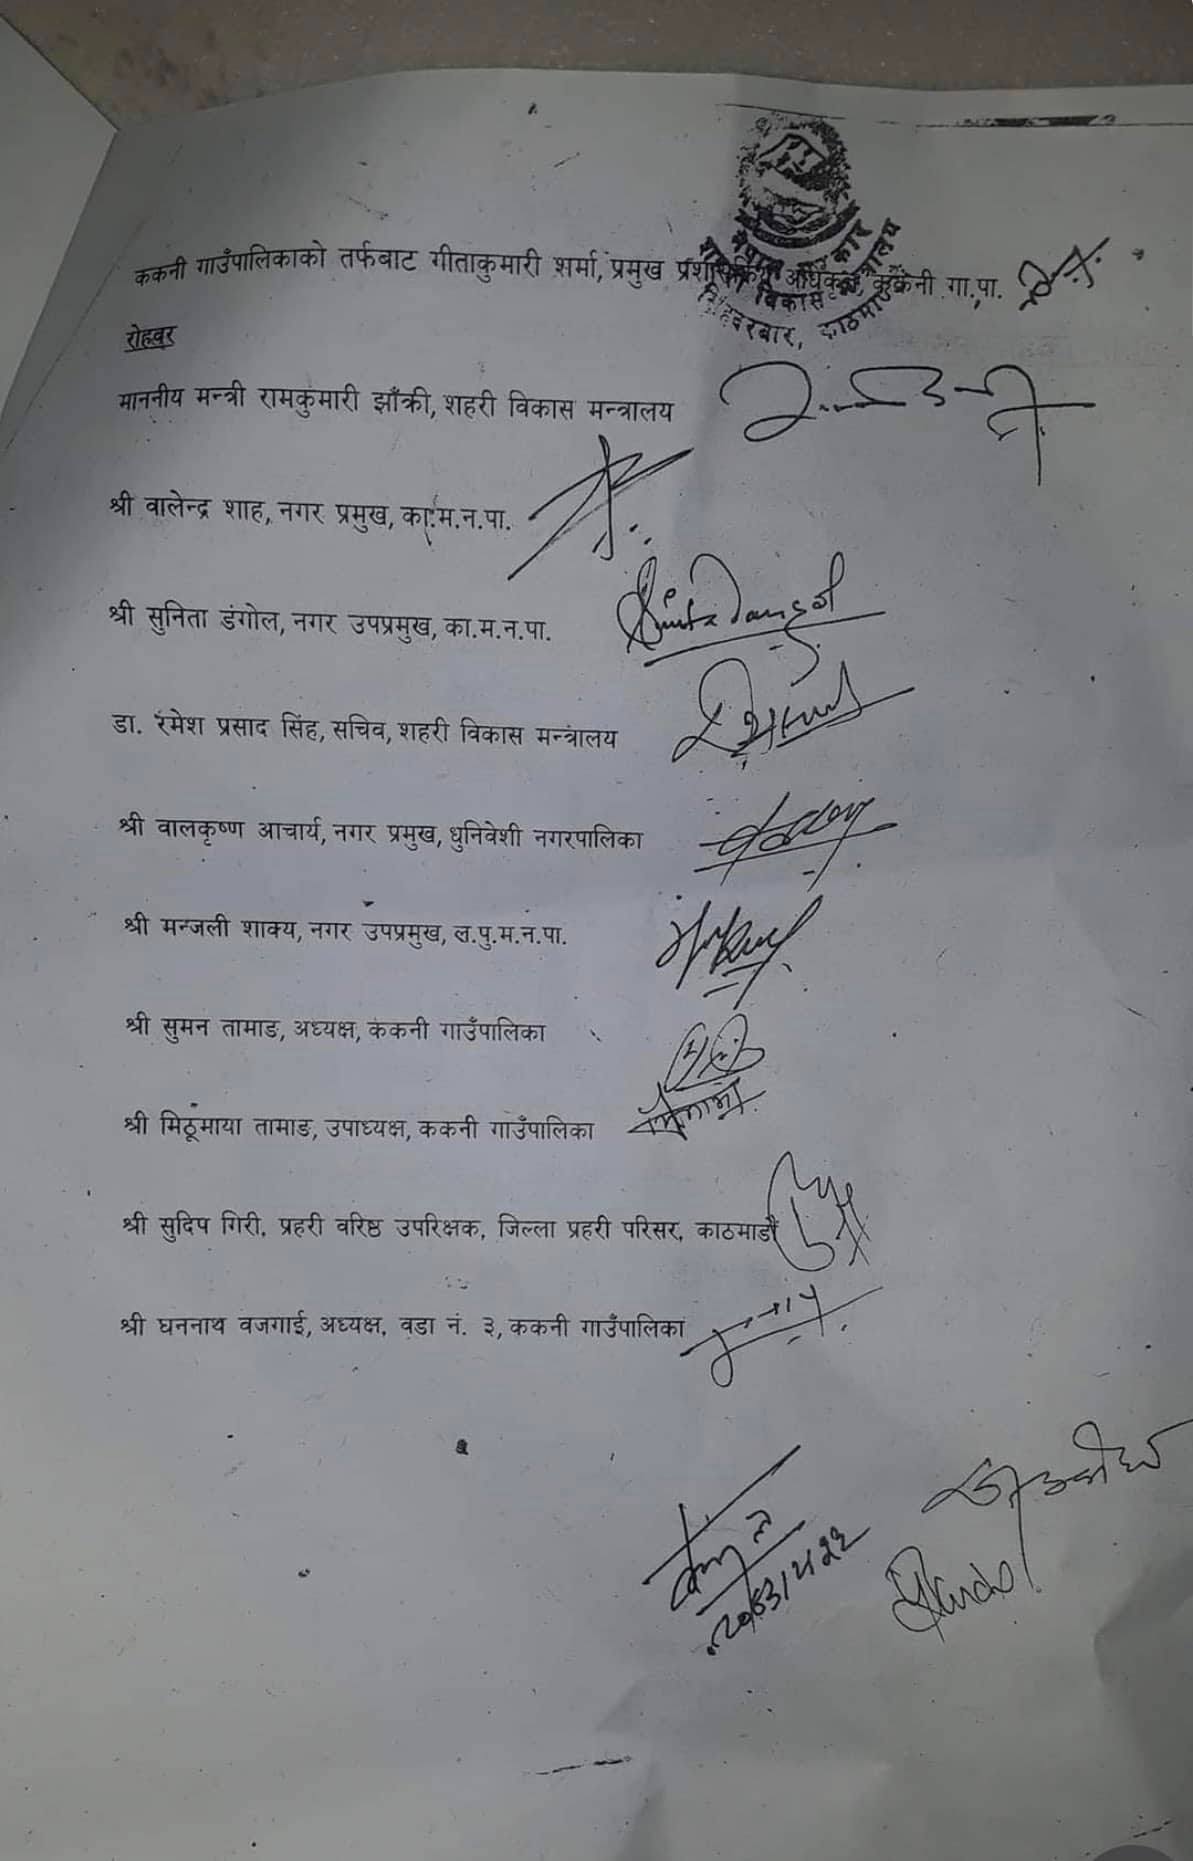 नेपाल सरकार
शहरी विकास मन्त्रालय
सिंहदरबार, काठमाडौं
ककनी गाउँपालिकाको तर्फबाट गीताकुमारी शर्मा, प्रमुख प्रशासकीय अधिकृत, ककनी गा.पा.
रोहवर
माननीय मन्त्री रामकुमारी झाँक्री, शहरी विकास मन्त्रालय
श्री वालेन्द्र शाह, नगर प्रमुख, का.म.न.पा.
श्री सुनिता डंगोल, नगर उपप्रमुख, का.म.न.पा.
डा. रमेश प्रसाद सिंह, सचिव, शहरी विकास मन्त्रालय
श्री वालकृष्ण आचार्य, नगर प्रमुख, धुनिवेशी नगरपालिका
श्री मन्जली शाक्य, नगर उपप्रमुख, ल.पु.म.न.पा.
श्री सुमन तामाङ, अध्यक्ष, ककनी गाउँपालिका
श्री मिठूमाया तामाङ, उपाध्यक्ष, ककनी गाउँपालिका
श्री सुदिप गिरी, प्रहरी वरिष्ठ उपरिक्षक, जिल्ला प्रहरी परिसर, काठमाडौं
श्री घननाथ वजगाई, अध्यक्ष, वडा नं. ३, ककनी गाउँपालिका